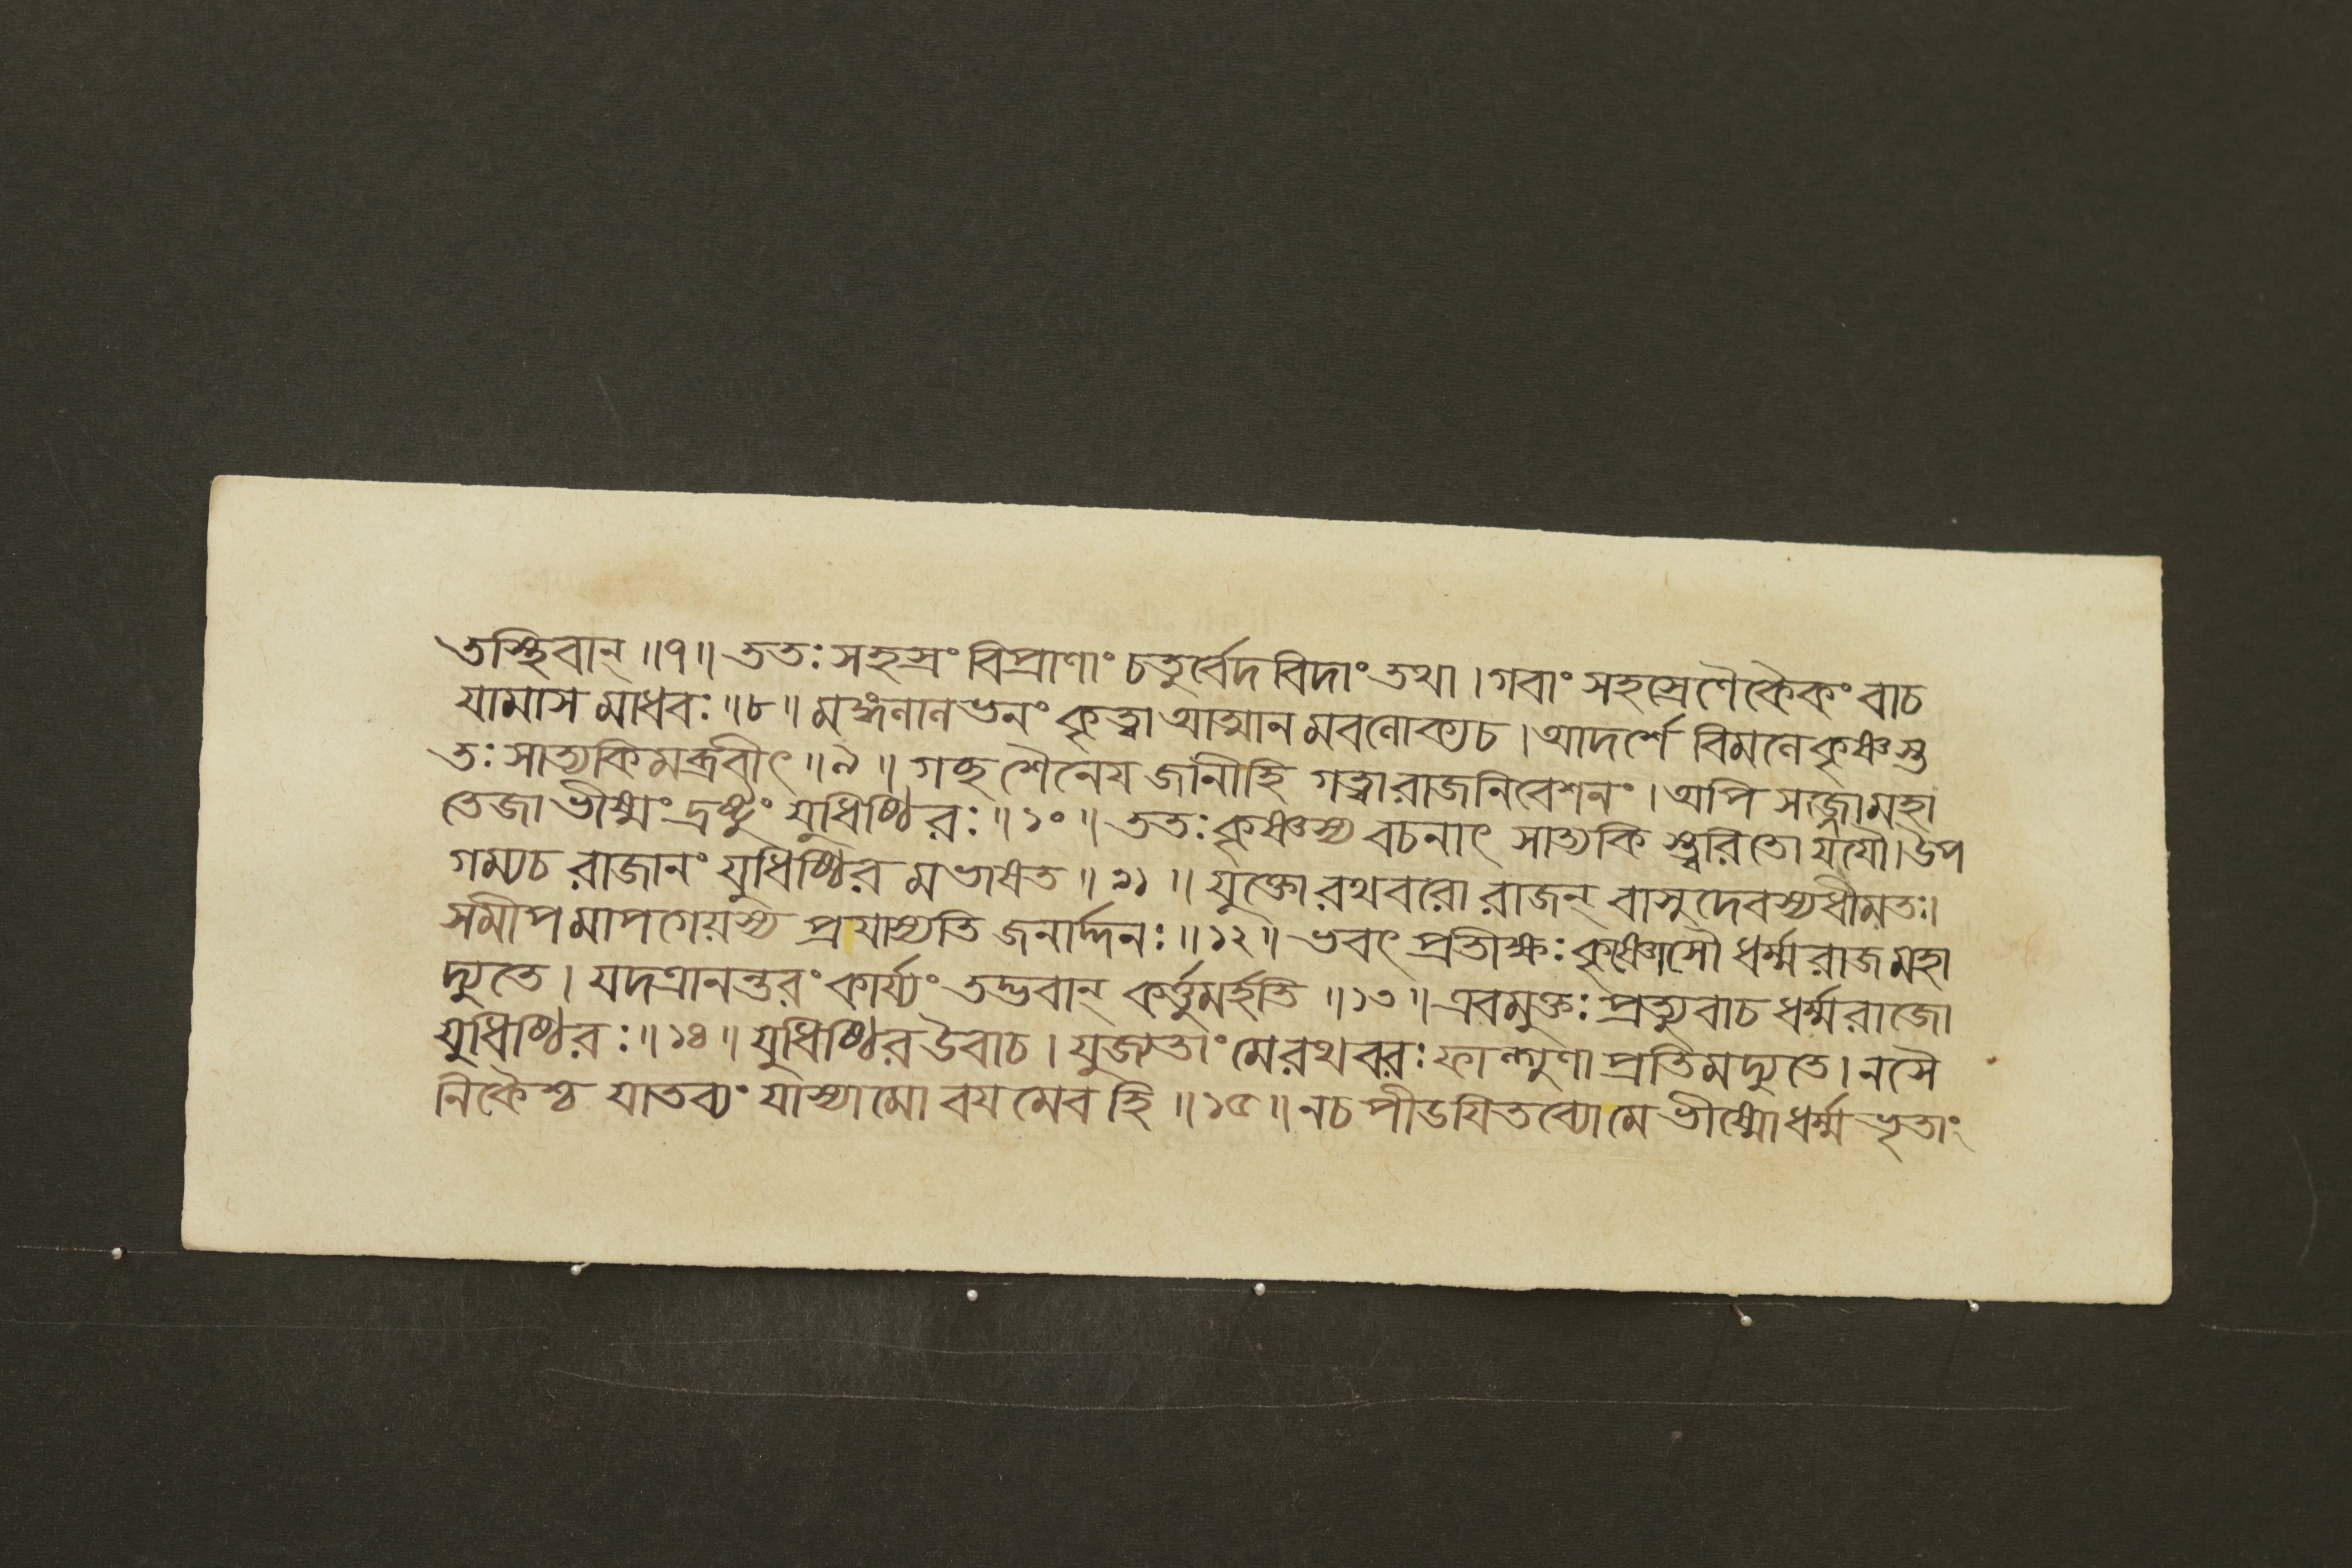 তস্থিবান্ ॥৭॥ ততঃ সহস্রং বিপ্রাণাং চতুর্ব্বেদ বিদাং তথা । গবাং সহস্রেণৈকৈকং বাচ
যামাস মাধবঃ ॥৮॥ মঙ্গলালভনং কৃত্বা আত্মান মবলোক্য চ । আদর্শে বিমলে কৃষ্ণস্তু
তঃ সাত্যকিমব্রবীৎ ॥৯॥ গচ্ছ শৈনেয জানীহি গত্বা রাজনিবেশনং । অপি সজ্জো মহা
তেজা ভীষ্মং দ্রষ্টুং যুধিষ্ঠিরঃ ॥১০॥ ততঃ কৃষ্ণস্য বচনাৎ সাত্যকি স্ত্বরিতো যযৌ। উপ
গম্য চ রাজানং যুধিষ্ঠির মভাষত ॥১১॥ যুক্তো রথবরো রাজন্ বাসুদেবস্য ধীমতঃ।
সমীপ মাপগেয়স্য প্রযাস্যতি জনার্দ্দনঃ ॥১২॥ ভবৎ প্রতীক্ষঃ কৃষ্ণোসৌ ধর্ম্মরাজ মহা
দ্যুতে । যদত্রানন্তরং কার্য্যং তদ্ভবান্ কর্ত্তুমর্হতি ॥১৩॥ এবমুক্তঃ প্রত্যুবাচ ধর্ম্মরাজো
যুধিষ্ঠিরঃ ॥১৪॥ যুধিষ্ঠির উবাচ । যুজ্যতাং মে রথবরঃ ফাল্গুণা প্রতিমদ্যুতে । ন সৈ
নিকৈশ্চ যাতব্যং যাস্যামো বয মেব হি ॥১৫॥ ন চ পীডযিতব্যো মে ভীষ্মো ধর্ম্ম ভৃতাং